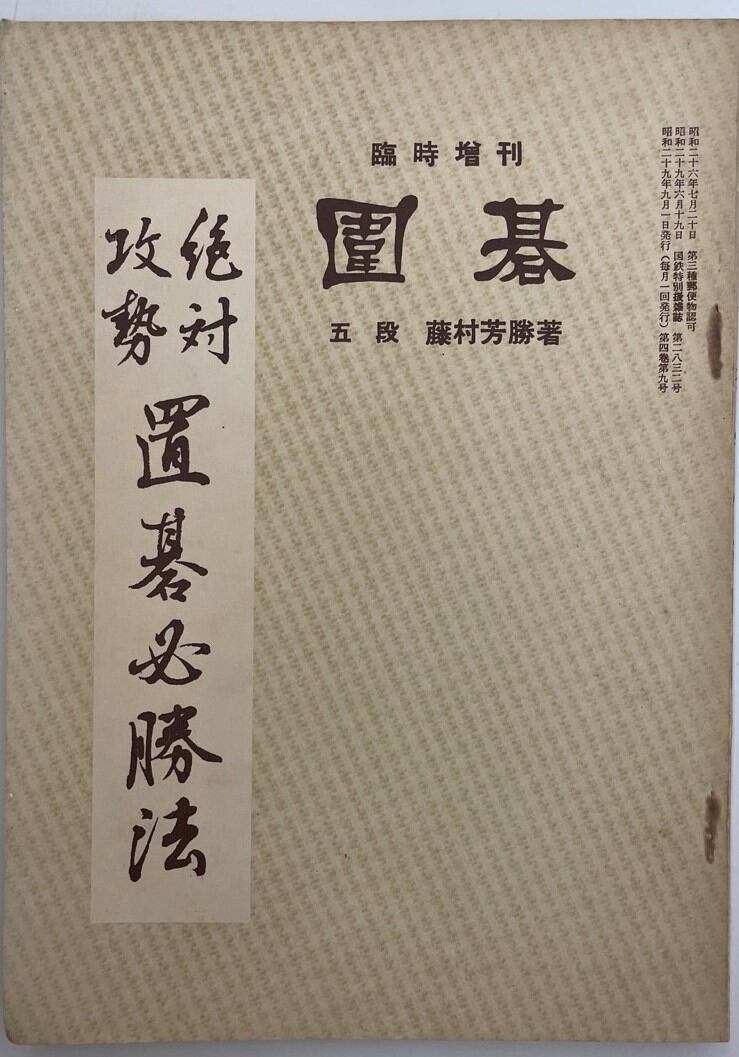 昭和二十六年七月二十日　第三種郵便物認可
昭和二十九年六月十九日　国鉄特別扱雑誌　第二八三二号
昭和二十九年九月一日発行（毎月一回発行）第四巻第九号
臨時増刊
圍碁
五段　藤村芳勝著
絶対
攻勢
置碁必勝法